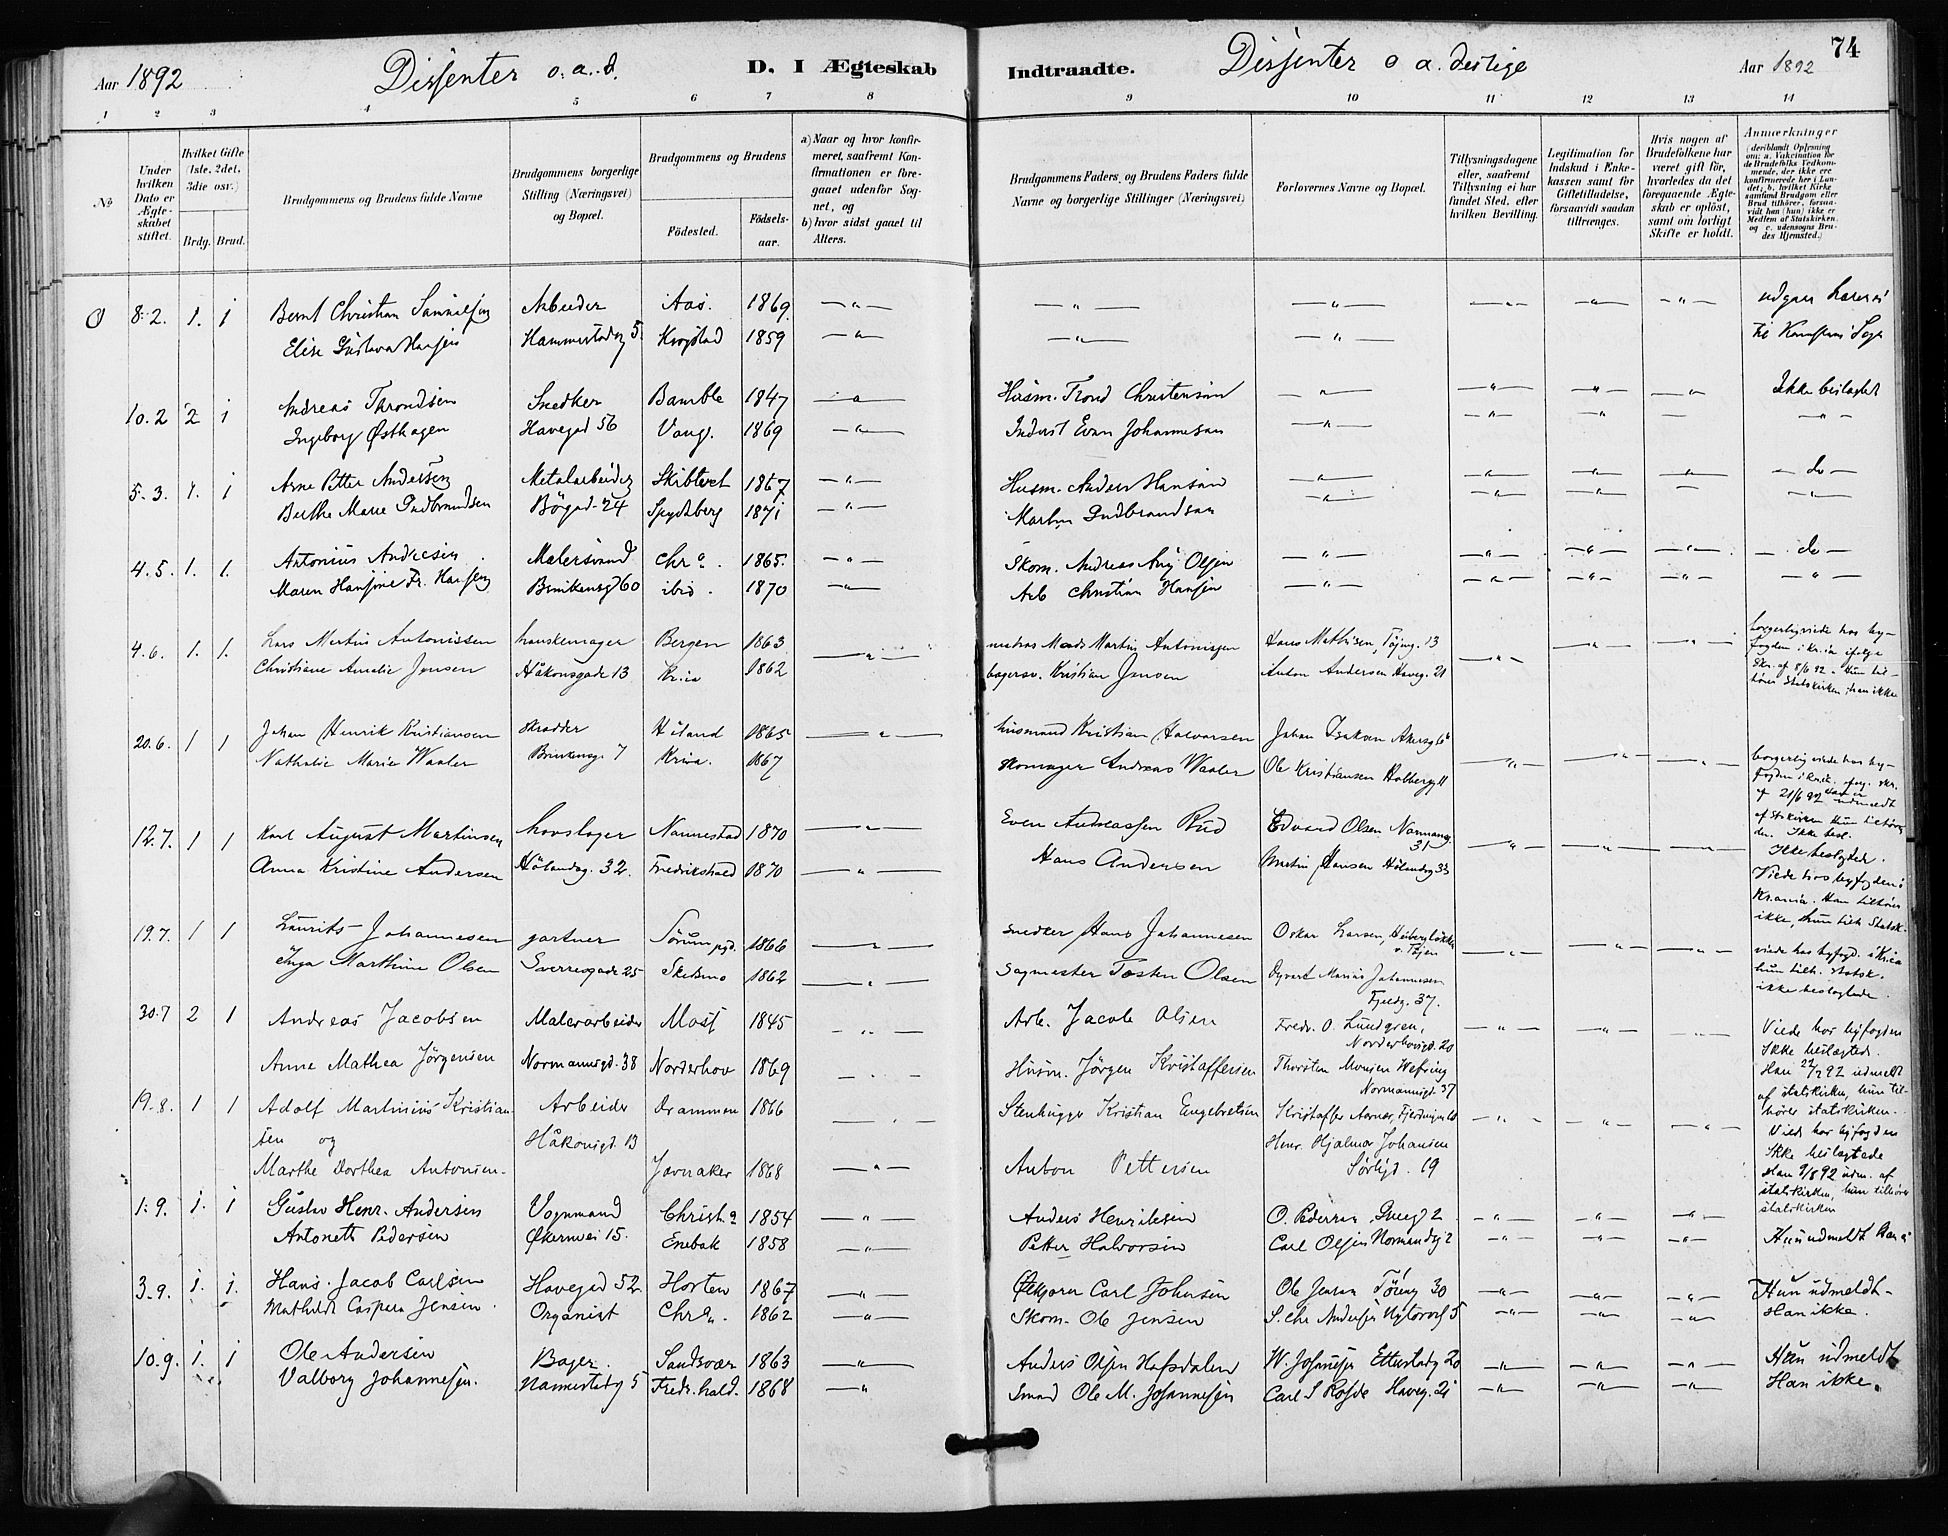 Aar 1892 Dissenter o. a. d. D. I Ægteskab Indtraadte. Dissenter o a. deslige Aar 1892 74
1 2 3 4 5 6 7 8 9 10 11 12 13 14
No
Under hvilken Dato er Ægteskabet stiftet.
Hvilket Gifte (1ste, 2det, 3die osv.)
Brdg. Brud.
Brudgommens og Brudens fulde Navne
Brudgommens borgerlige Stilling (Næringsvei) og Bopæl.
Brudgommens og Brudens
Fødested. Fødsels-aar.
a) Naar og hvor konfirmeret, saafremt Konfirmationen er foregaaet udenfor Sognet, og
b) hvor sidst gaaet til Alters.
Brudgommens Faders, og Brudens Faders fulde Navne og borgerlige Stillinger (Næringsvei)
Forlovernes Navne og Bopæl.
Tillysningsdagene eller, saafremt Tillysning ei har fundet Sted, efter hvilken Bevilling.
Legitimation for Indskud i Enkekassen samt for Giftetilladelse, forsaavidt saadan tiltrænges.
Hvis nogen af Brudefolkene har været gift før, hvorledes da det foregaaende Ægteskab er opløst, samt om lovligt Skifte er holdt.
Anmærkninger (deriblandt Oplysning om: a. Vakcination for de Brudefolks Vedkommende, der ikke ere konfirmerede her i Landet; b. hvilket Kirkesamfund Brudgom eller Brud tilhører, forsaavidt han (hun) ikke er Medlem af Statskirken, og c. udensogns Brudes Hjemsted.)
8.2. 1. 1 Bernt Christian Arbeider Aas. 1869
Elise Gustava Hansen 5 Krogstad 1859
10.2 2 1 Andreas Throndsen Snedker Bamble 1847 Husm. Trond Christensen Ikke beslægtet
Ingeborg Østhagen Havegad 56 Vang. 1869 Inderst Even Johannesen
5.3. 1. 1 Arne Petter Andersen Metalarbeider Skibtvet 1867 Husm. Anders Hansen – do –
Berthe Marie Gudbrandsen Bögad. 24 Spydeberg 1871 Martin Gudbrandsen
4.5. 1. 1. Antonius Andresen Malersvend Chr.a. 1865. Skom. Andreas Aug Olsen – do –
Maren Hansine Fr. Hansen 60 ibid. 1870 Arb Christian Hansen
4.6. 1. 1. Lars Martin Antonissen hanskemager Bergen 1863 matros Mads Martin Antonisen Hans Mathisen, Töieng. 13 borgerlig viede hos byfogden i Kr.ia ifølge
Christiane Amalie Jensen Håkonsgade 13 Kr.ia 1862 bagersv. Kristian Jensen Anton Andersen Haveg. 21 Skr. af 8/6 92. Hun tilhører Statskirken, han ikke
20.6. 1 1 Johan Henrik Kristiansen skrædder 1865 husmand Kristian Halvorsen Johan Isaksen Akersg
Nathalie Marie Waaler 7 Kr.ia. 1867 skomager Andreas Waaler Ole Kristiansen Holbergg 11 borgerlig viede hos byfogden i Kr.ia.
12.7. 1 1 Karl August Martinsen hovslager Nannestad 1870 Even Andreassen Rud Edvard Olsen Normannsg. 31
Anna Kristine Andersen Hölandsg. 32. Fredrikstad 1870 Hans Andersen Martin Hansen Hölandsg 33 Ikke beslægtede. Viede hos byfogden i Kr.ania. Han tilhører ikke, hun tilh. Statsk.
19.7. 1 1 Laurits Johannesen gartner Sörum pgd. 1866 snedker Hans Johannesen Oskar Larsen, v. Töien
Inga Marthine Olsen Sverresgade 25 Skedsmo 1862 sagmester Tosten Olsen Marius Johannesen Fjeldg. 37. viede hos byfogd. i Kr.ia hun tilh. statsk. ikke beslægtede.
30.7 2 1 Andreas Jacobsen Malerarbeider Moss 1845 Arb. Jacob Olsen Fredr. O. Lundgren, 20 Viede hos byfogden
Anne Mathea Jörgensen Normannsgd. 38 Norderhov 1869 Husm. Jörgen Kristoffersen Thorsten Monsen Normannsgd. 37 Ikke beslægtede. Han 27/7 92 udmeldt af statskirken, hun tilhører statskirken.
19.8. 1 1 Adolf Martinius Kristiansen og Arbeider Drammen 1866 Stenhugger Kristian Engebretsen Viede hos byfogden
Håkonsgd. 13 Henr. Hjalmar Johansen Ikke beslægtede
Marthe Dorthea Antonsen. Jevnaker 1868 Anton Pettersen Sörligd. 19 Han 9/8 92 udm. af statskirken, hun tilhører statskirken
1.9. 1. 1 Gustav Henr. Andersen Vognmand Christ.a 1854 Anders Henriksen O. Pedersen 2
Antonette Pedersen Økernvei 15. Enebak 1858 Petter Halvorsen Carl Olsen Normandsg 2 Hun udmeldt Han ei
3.9. 1. 1. Hans Jacob Carlsen Havegad 52. Horten 1867 Carl Johnsen Ole Jensen Töieng 30 Hun udmeldt
Mathilde Caspara Jensen. Organist Chr.a. 1862 Skom. Ole Jensen S. Chr Andersen Nytorvet 5 Han ikke.
10.9. 1. 1 Ole Andersen Bager. Sandsvær 1863 Anders Olsen Hafsdalen W. Johnsen Etterstadg 20 Hun udmeldt
Valborg Johannesen. Nannestadg 5 Fredr.hald. 1868 Smed Ole M. Johannesen Carl S Haveg. 21 Han ikke.